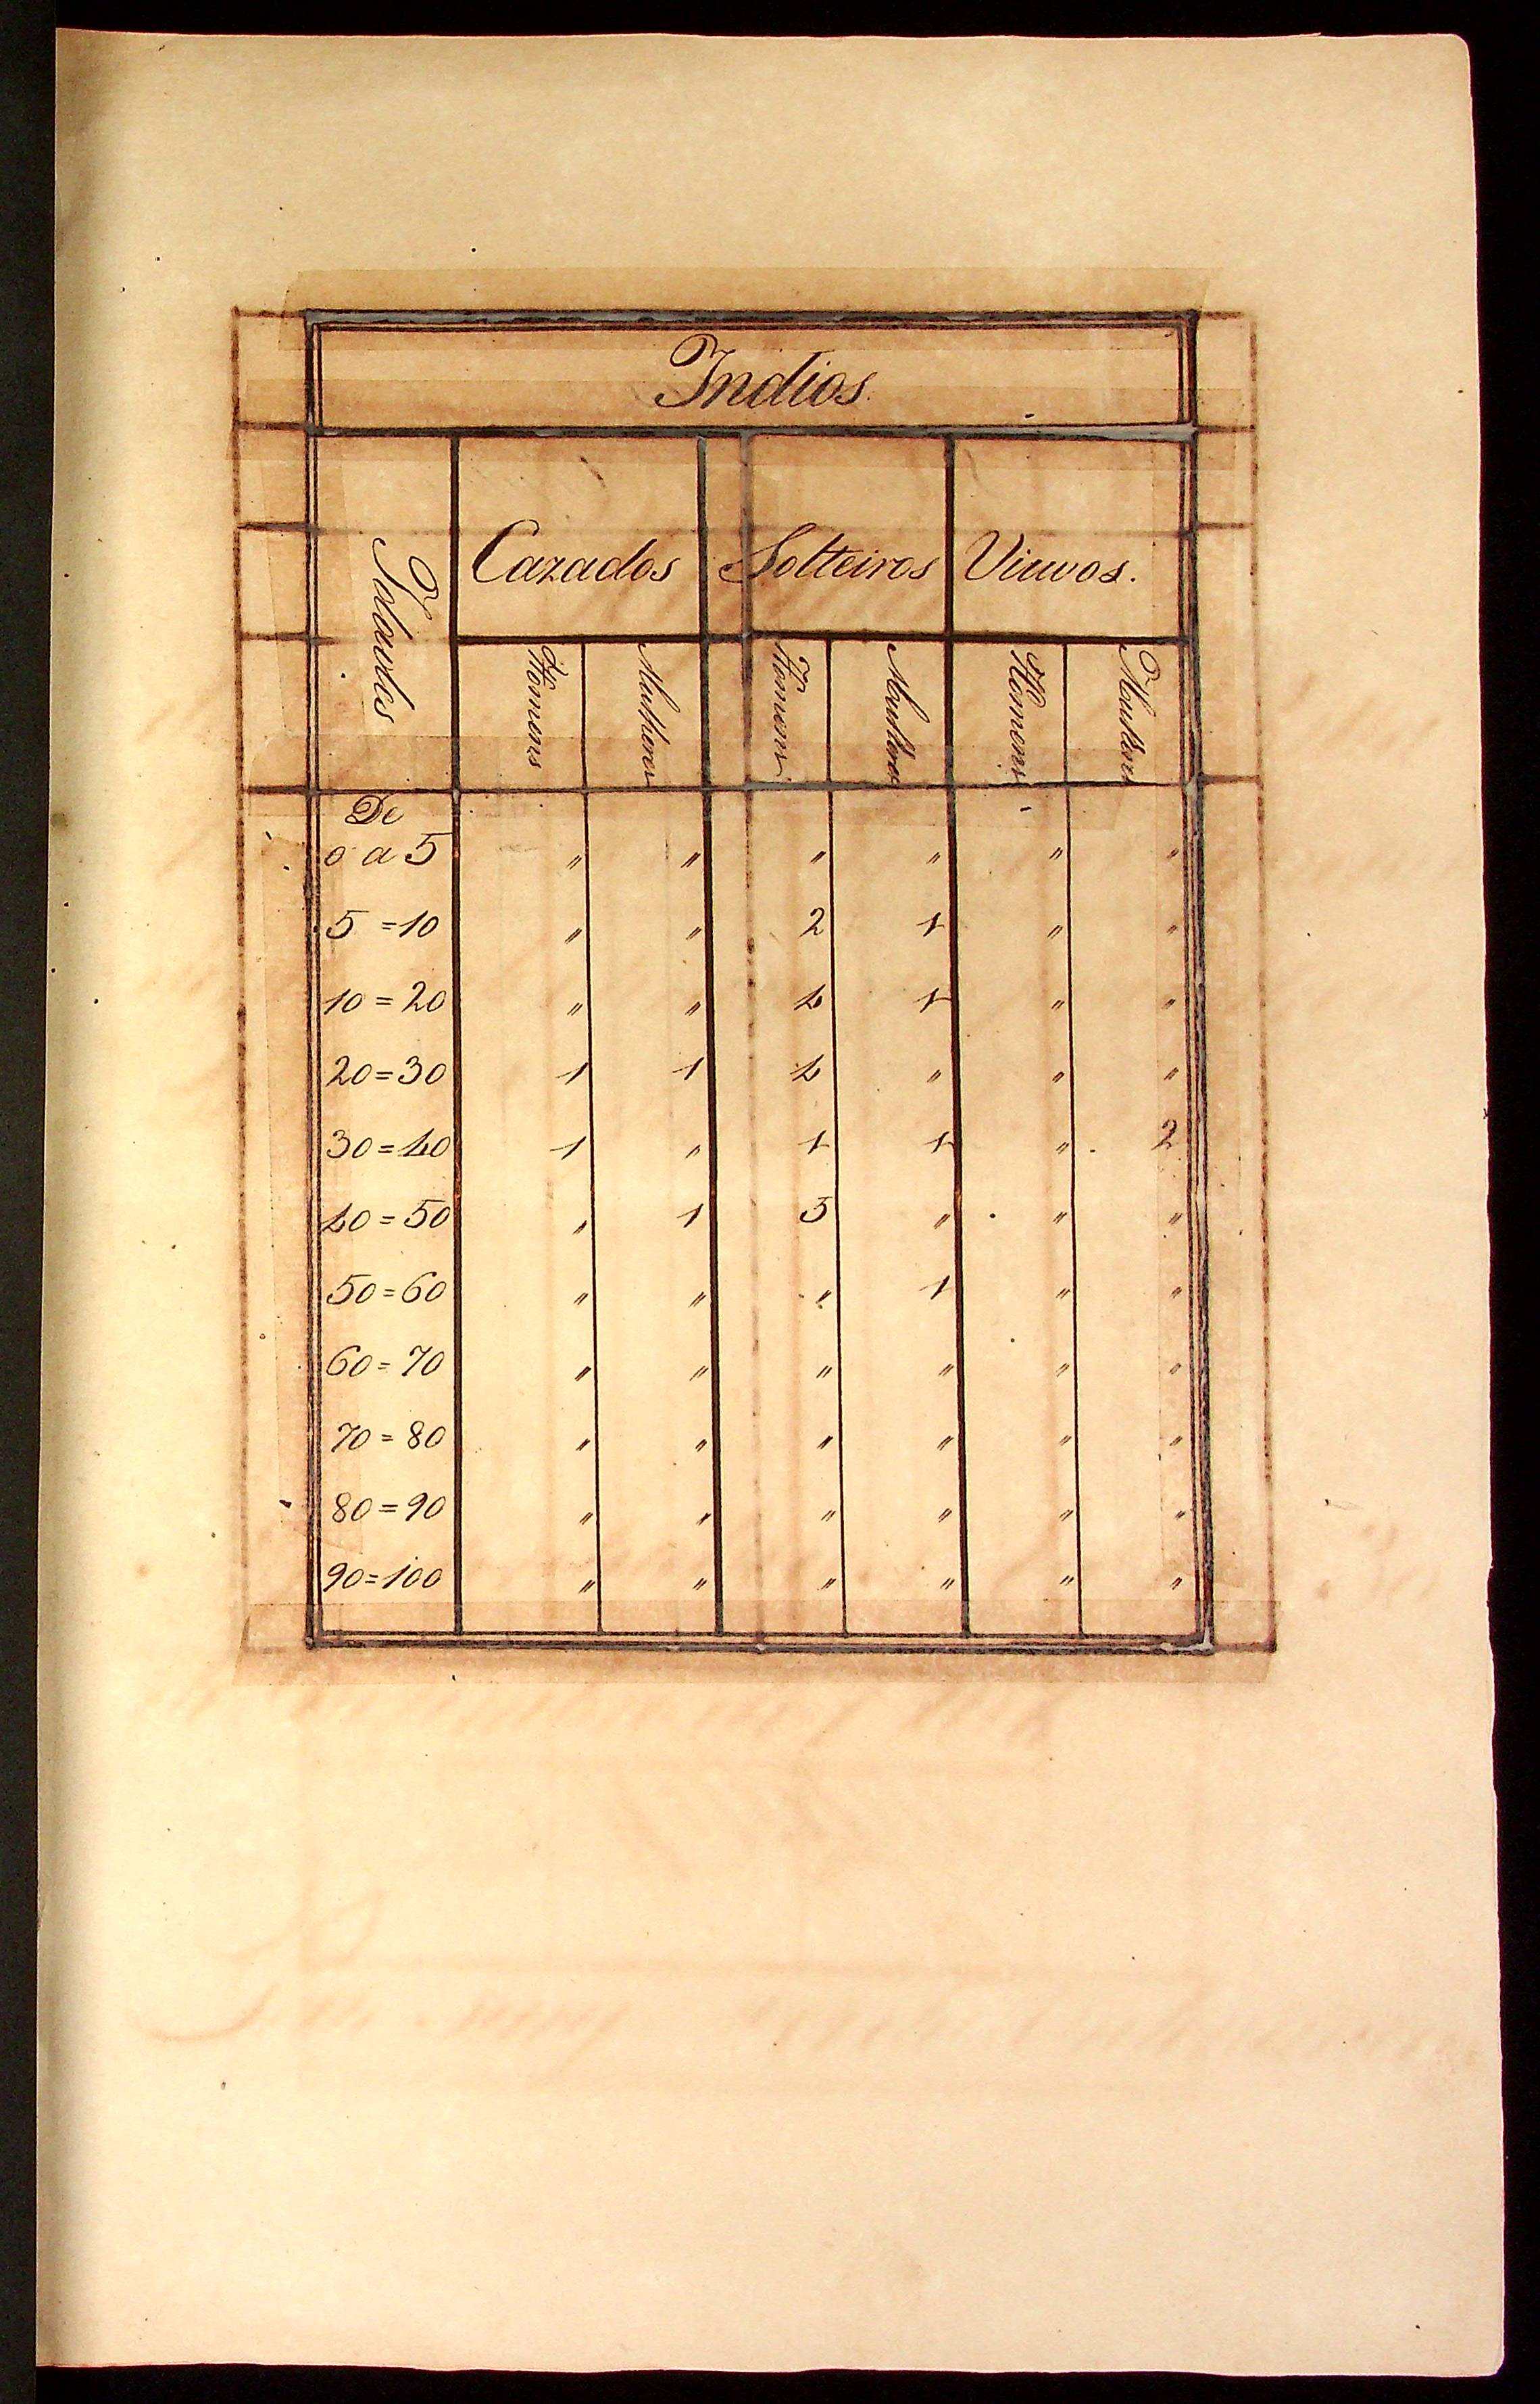 Indios.
Idades Cazados Solteiros Viuvos.
Homens Mulheres Homens Mulheres Homens Mulheres
De
0 a 5 " " " " " "
5 = 10 " " 2 1 " "
10 = 20 " " 4 1 " "
20 = 30 1 1 4 " " "
30 = 40 1 " 1 1 " 2
40 = 50 " 1 5 " " "
50 = 60 " " " 1 " "
60 = 70 " " " " " "
70 = 80 " " " " " "
80 = 90 " " " " " "
90 = 100 " " " " " "